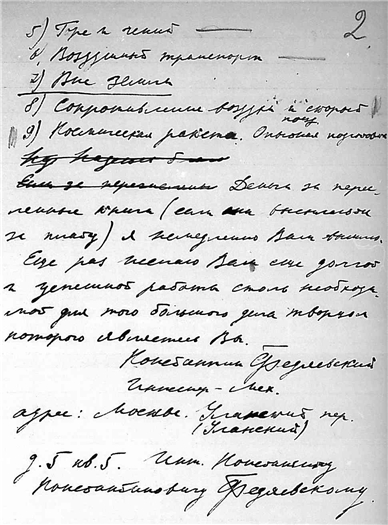 2
5) Горе и гений —
6) Воздушный транспорт —
7) Вне Земли
8) Сопротивление воздуха и скорый
поезд
9) Космическая ракета. Опытная подготовка
Деньги за перечи-
сленные книги (если они высылаются
за плату) я немедленно Вам вышлю.
Еще раз желаю Вам еще долгой
и успешной работы столь необходи-
мой для того большого дела творцом
которого являетесь Вы.
Константин Федяевский
Инженер-Мех.
адрес: Москва. Уланский пер.
(Уланский)
д. 5 кв. 5. Инж. Константину
Константиновичу Федяевскому.